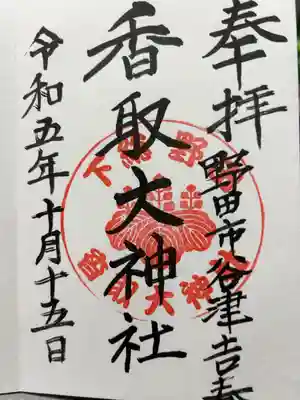 奉拝
野田市谷津吉春
香取大神社
令和五年十月十五日